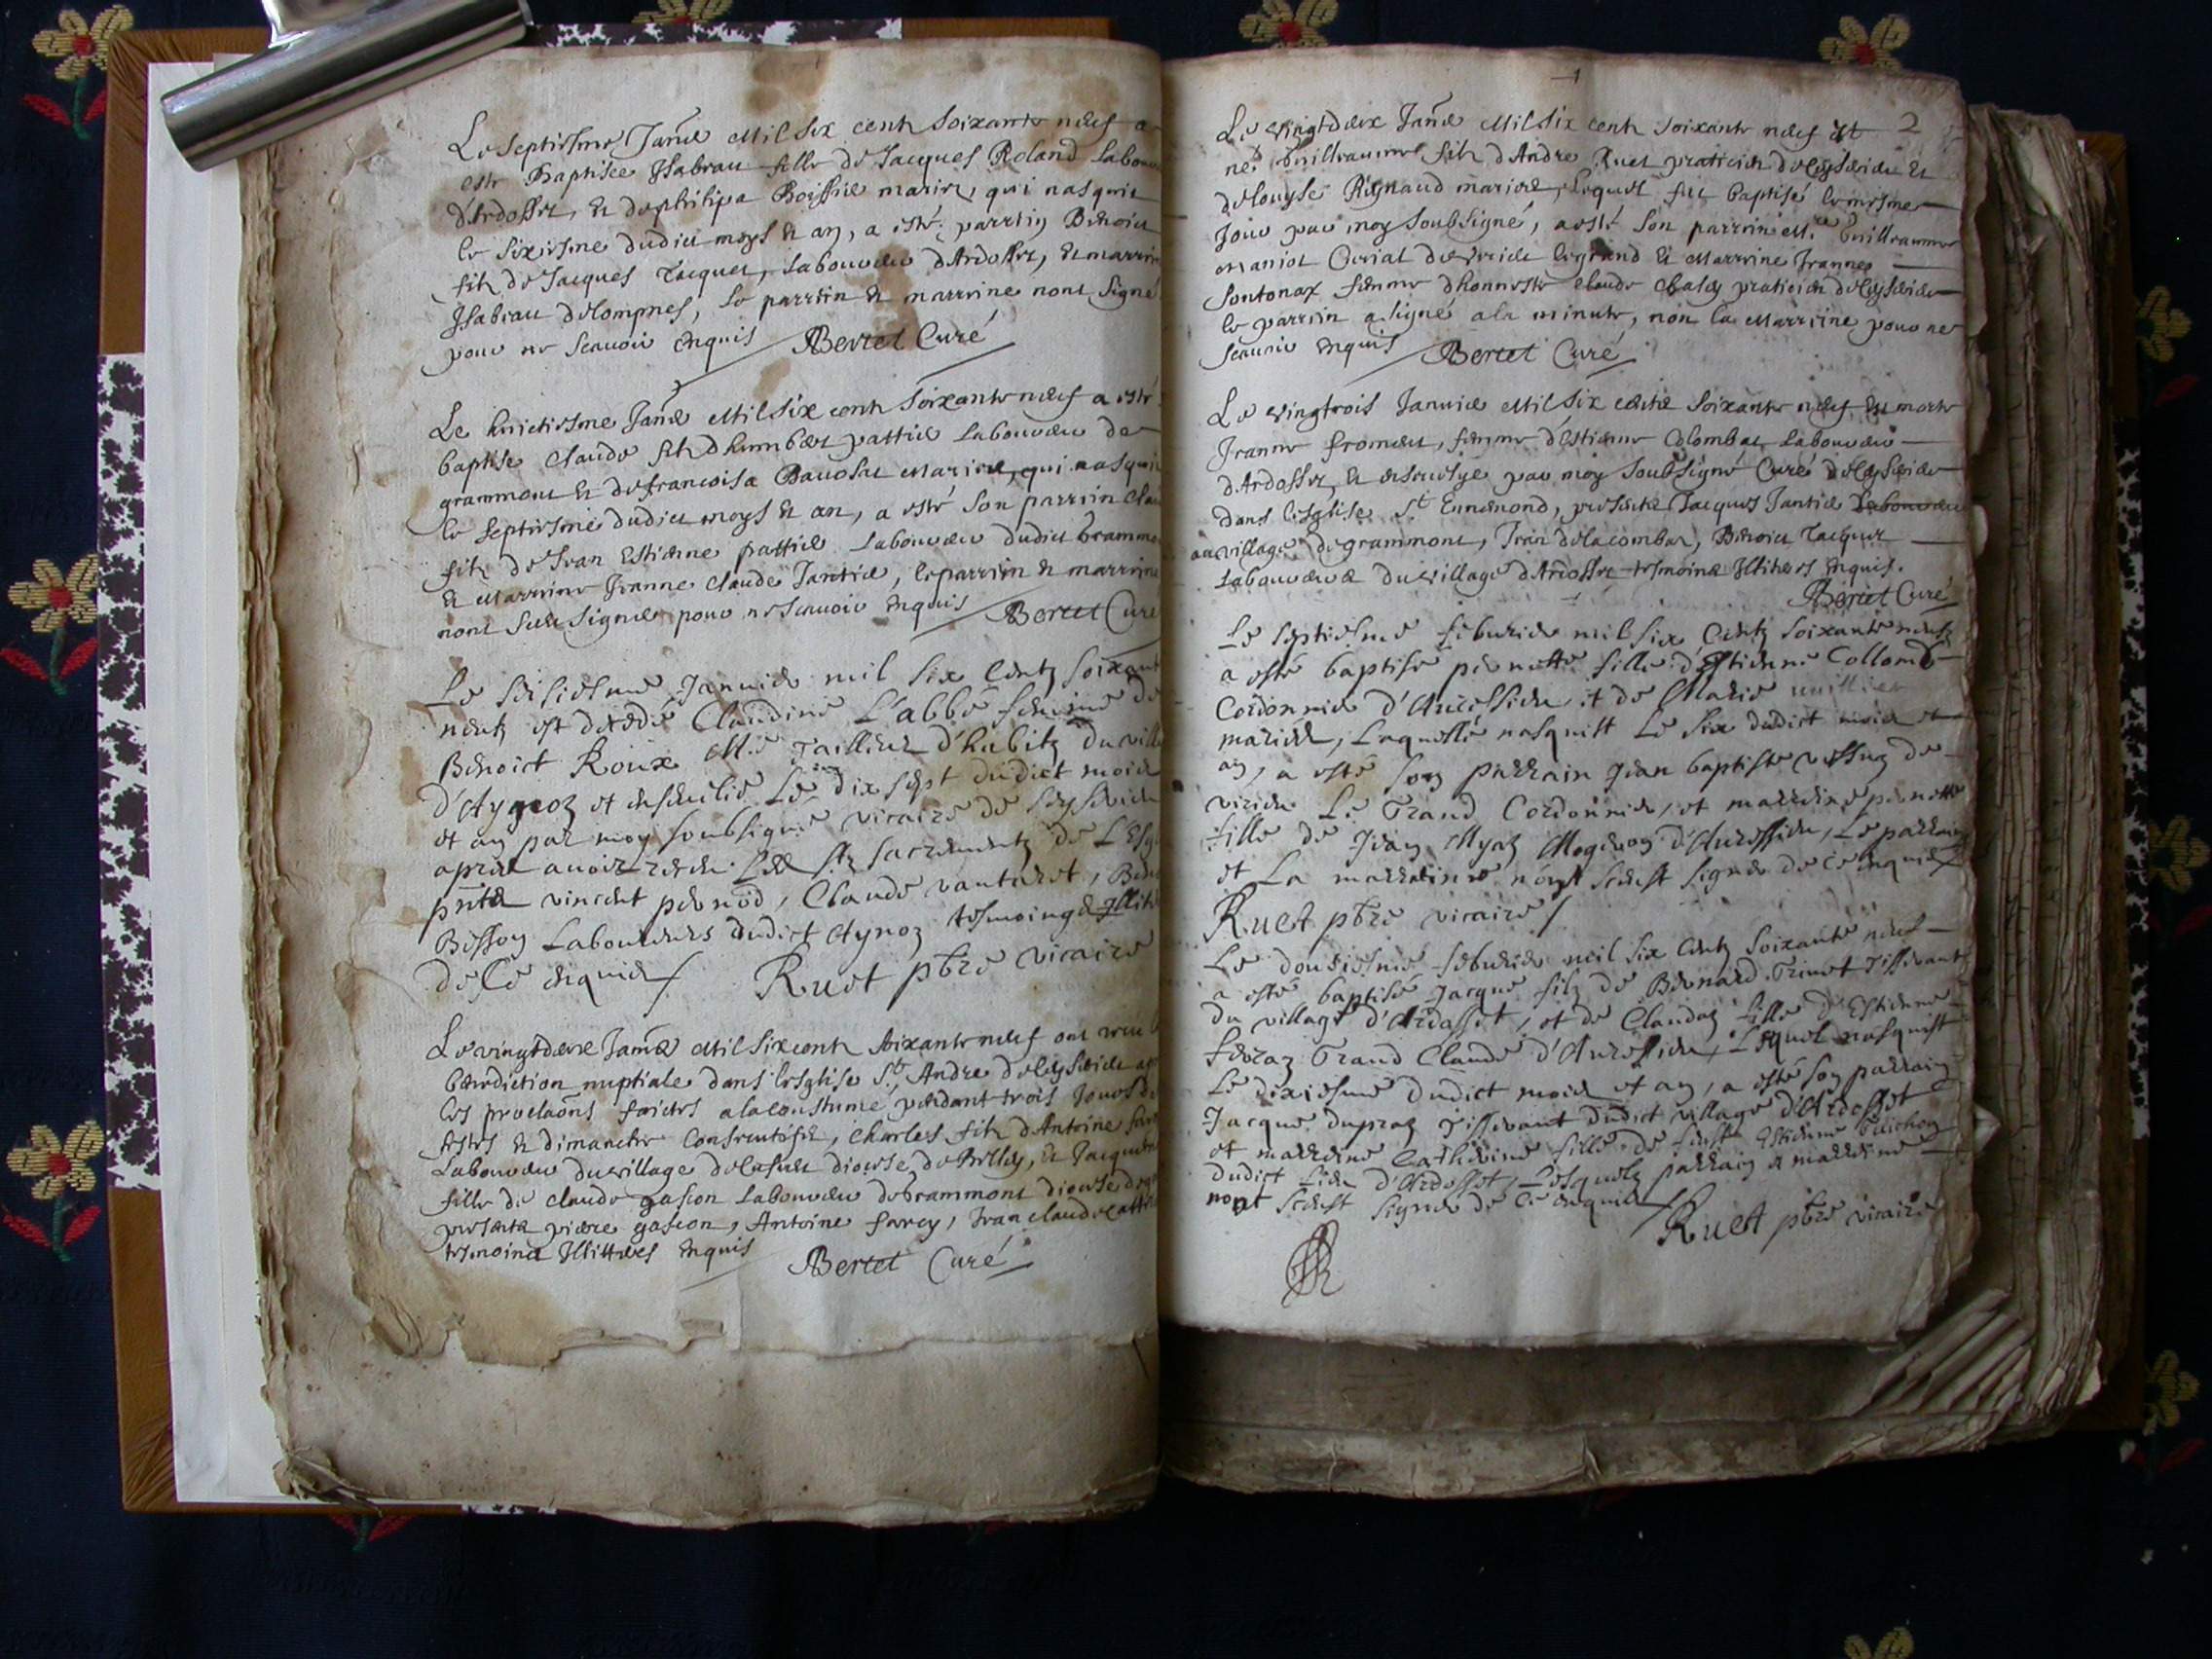 Le septiesme Janer Mil six cent soixante neuf a
este Baptisée Isabeau fille de Jacques Roland Labou
d'Ardosset, et de philipa Boissie mariez, qui nasquit
le sixiesme dudict moys et an, a esté parrein Benoict
filz de Jacques Jacquet, laboureur d'Ardosset, et marrin
Isabeau delompnes, le parrein et marrine nont signé
pour ne scauoir enquis Bertet Curé
Le huictiesme Janer Mil six cent soixante neuf a esté
baptise Claude filz dhumbert pattie Laboureur de
grammont et de francoisa mariez, qui nasqui
le septiesme dudict moys et an, a esté son parrin Clau
filz de Jean Estienne pattie Laboureur dudict Grammo
et Marrine Jeanne Claude Jantie, leparrin et marrine
nont sceu signer pour ne scauoir enquis Bertet Curé
Le seisiesme Januier mil six Centz soixant
neufz est decedé Claudine L'abbé femme de
Benoict Roux Me Tailleur d'habitz du vill
d'Aygnoz et enseuelie Le dix sept dudict mois
et an par moy soubsigné vicaire de
apres auoir receu Les stz sacrementz de L'Esg
pntz vincent pernod, Claude vanturet, Ben
Besson Laboureurs dudict Aynoz tesmoings Illit
de ce enquis Ruet pbre vicaire
Le vingtdeux Janer Mil six cent soixante neuf ont receu
benediction nuptiale dans lesglise St Andre de
les proclaons faictes a lacoustume pendant trois Jours de
festes et dimanche Consecutifz, Charles filz d'Antoine
Laboureur du village diocese de Belley, et Jacquem
fille de claude gascon Laboureur de Grammont diocese
presentz pierre gascon, Antoine farcy, Jean claude
tesmoins Illitteres enquis Bertet Curé
2
Le vingtdeux Janer Mil six cent soixante neuf est
né Guilleaume filz d'Andre Ruet praticien de et
delouyse Reynaud mariez, lequel fut baptisé lemesme
Jour par moy soubsigné, a esté son parrin Me Guilleaume
Maniot Curial de virieu legrand et Marrine Jeanne
fontonax femme dhonneste claude praticien de
le parrein a signé a la minute, non la Marrine pour ne
scauoir enquis Bertet Curé
Le vingtrois Januier Mil six centz soixante neuf est morte
Jeanne fromen, femme d'Estienne Colombat Laboureur
d'Ardosset, et enseuelye par moy soubsigné Curé de
dans lesglise St Ennemond, presentz Jacques Jantie Laboureur
au village de grammont, Jean delacombaz, Benoict Jacquet
Laboureurs du village d'Ardosset tesmoins Illiteres enquis.
Bertet Curé
Le septiesme feburier mil six Centz soixante neufz
a esté baptisé pernette fille d'Estienne Collomb
Cordonnier d'Auressieu et de Marie
mariez, Laquelle nasquist Le six dudict mois et
an, a esté son parrain Jean baptiste de
virieu Le Grand Cordonnier, et marreine pernette
fille de Jean d'Auressieu, Le parrain
et La marreinne nont sceust signer de ce enquis
Ruet pbre vicaire
Le douziesme feburier mil six Centz soixante neuf
a esté baptisé Jacque filz de Bernard Trinet Tisserant
du village d'Ardosset, et de Claudaz fille d'Estienne
Grand Claude d'Auressieu, Lequel nasquist
Le dixiesme dudict mois et an, a esté son parrain
Jacque dupraz Tisserant dudict village d'Ardosset
et marreine Catherine fille de feust Estienne
dudict Lieu d'Ardosset, Lesquelz parrain et marreine
nont sceust signer de ce enquis
Ruet pbre vicaire